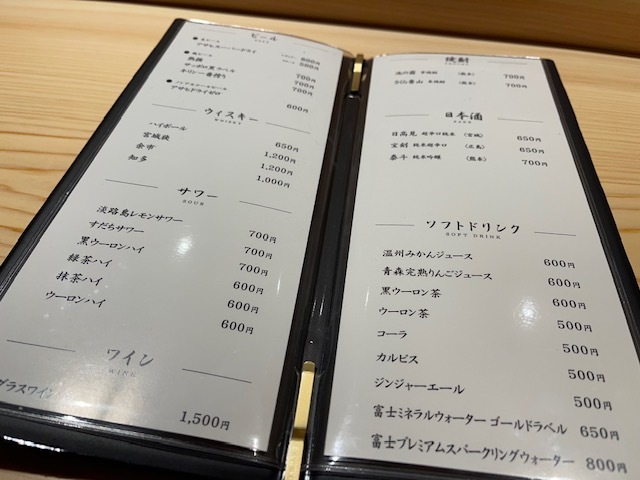 ビール
BEER
●生ビール
アサヒスーパードライ
800円
500円
●瓶ビール
熱撫
700円
サッポロ黒ラベル
700円
キリン一番搾り
700円
●ノンアルコールビール
アサヒドライゼロ
600円
ウィスキー
WHISKY
ハイボール 650円
宮城峡 1,200円
余市 1,200円
知多 1,000円
サワー
SOUR
淡路島レモンサワー 700円
すだちサワー 700円
黒ウーロンハイ 700円
緑茶ハイ 600円
抹茶ハイ 600円
ウーロンハイ 600円
ワイン
WINE
グラスワイン 1,500円
焼酎
700円
700円
日本酒
SAKE
日高見 超辛口純米 (宮城) 650円
宝剣 純米超辛口 (広島) 650円
泰斗 純米吟醸 (熊本) 700円
ソフトドリンク
SOFT DRINK
温州みかんジュース 600円
青森完熟りんごジュース 600円
黒ウーロン茶 600円
ウーロン茶 500円
コーラ 500円
カルピス 500円
ジンジャーエール 500円
富士ミネラルウォーター ゴールドラベル 650円
富士プレミアムスパークリングウォーター 800円